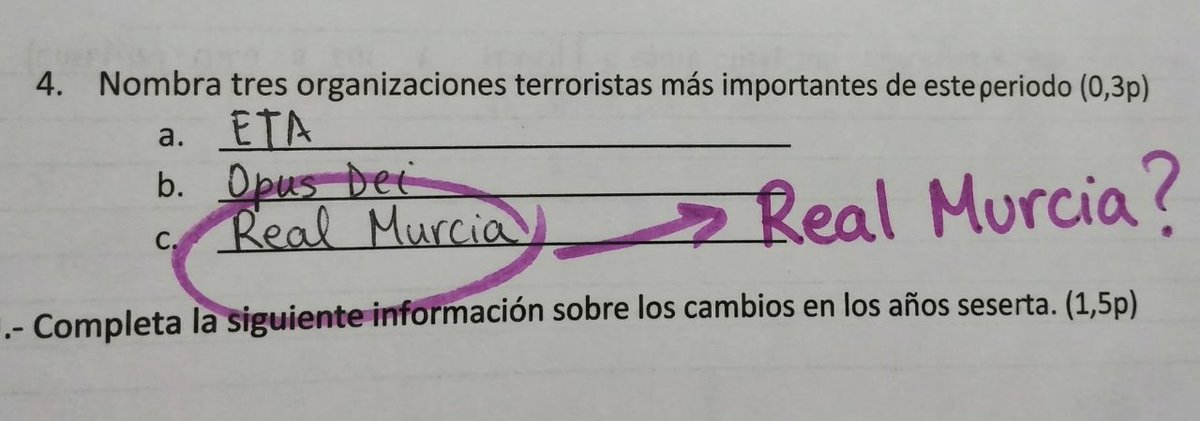 4. Nombra tres organizaciones terroristas más importantes de este periodo (0,3p)
a. ETA
b. Opus Dei
c. Real Murcia
Real Murcia?
.- Completa la siguiente información sobre los cambios en los años seserta. (1,5p)